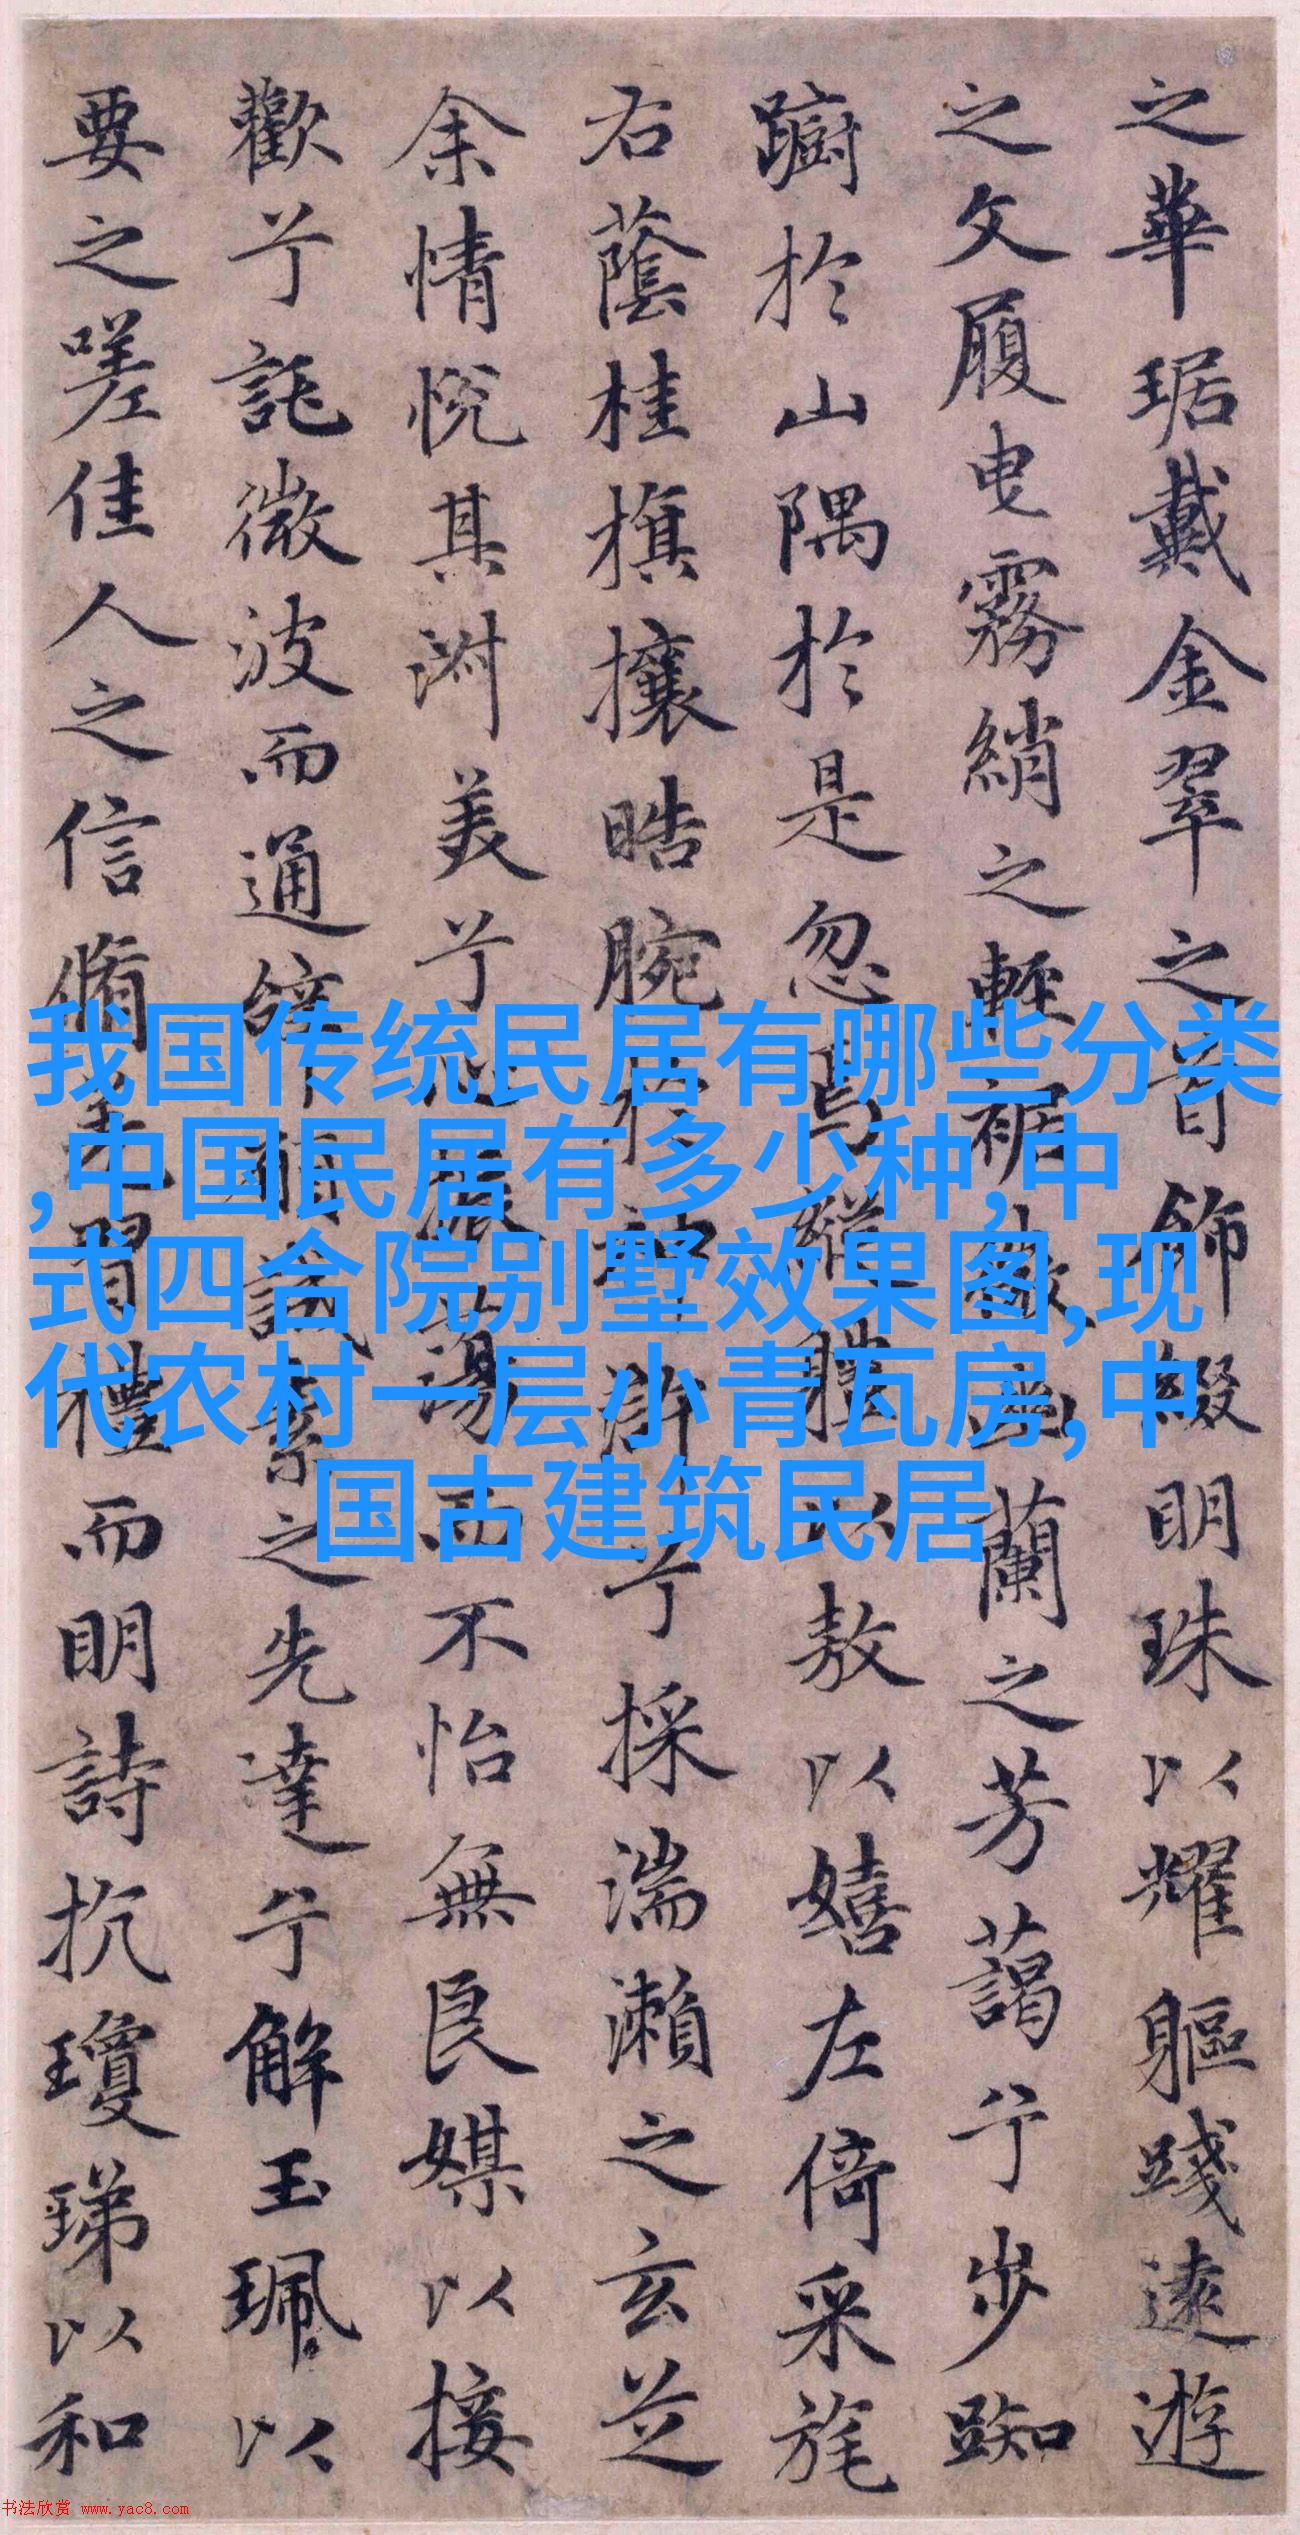 之華琚戴金翠之首飾綴明珠以耀軀踐遠遊
之文履曳霧綃之輕裾微幽蘭之芳藹兮步踟
躕於山隅於是忽焉縱體以敖以嬉左倚采旄
右蔭桂旗攘晧腕於神滸兮採湍瀨之玄芝
余情悅其淑美兮心振蕩而不怡無良媒以接
歡兮託微波而通辭兮願誠素之先達兮解玉珮以
要之嗟佳人之信脩羌習禮而明詩抗瓊珶以和
我国传统民居有哪些分类
,中国民居有多少种,中
式四合院别墅效果图,现
代农村一层小青瓦房,中
国古建筑民居
书法欣赏 www.yac8.com